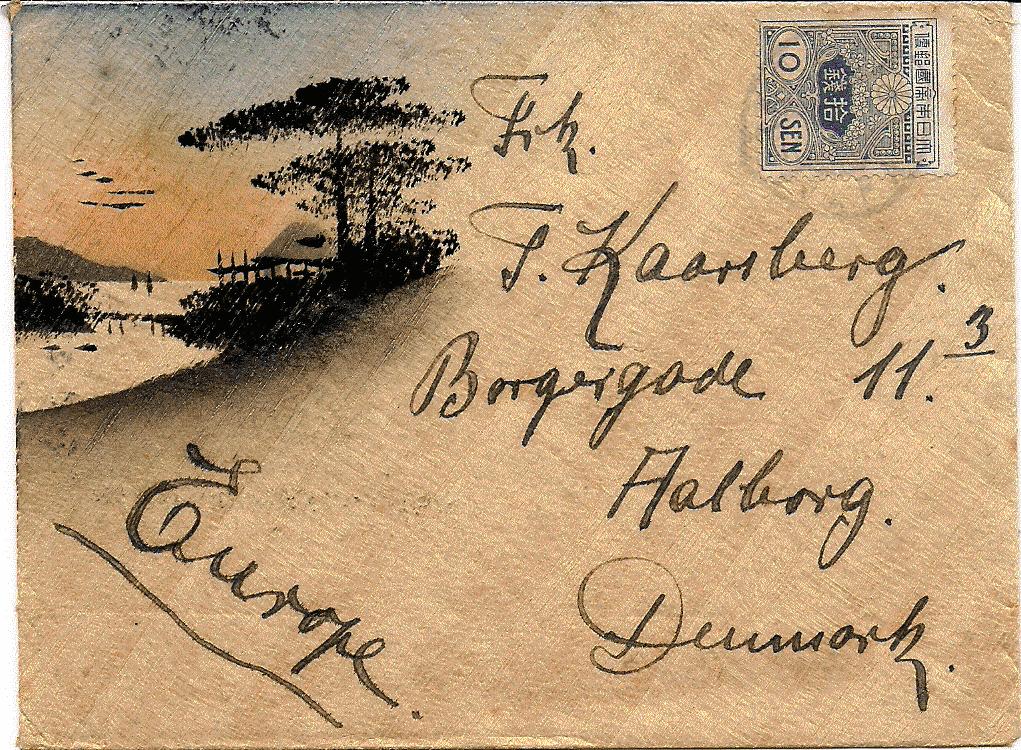 Frk.
T. Kaarsberg.
Borgergade 11.3
Aalborg.
Denmark.
Europe.
大日本帝國郵便
拾錢
10
SEN